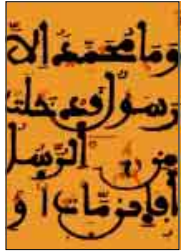 وَمَا مُحَمَّدٌ إِلَّا
رَسُولٌ قَدْ خَلَتْ
مِن قَبْلِهِ الرُّسُلُ
أَفَإِين مَّاتَ أَوْ